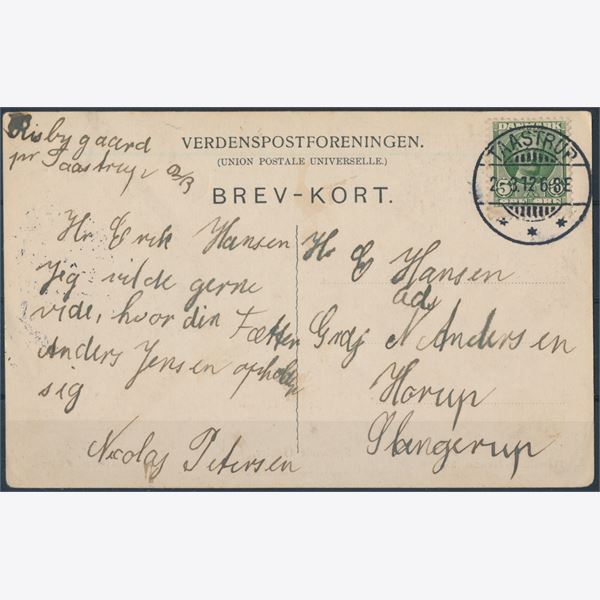 Risbygaard
pr Taastrup 2/3
VERDENSPOSTFORENINGEN.
(UNION POSTALE UNIVERSELLE.)
BREV-KORT.
DANMARK
5 5
TAASTRUP
2.3.12 6-8E
Hr Erik Hansen
Jeg vilde gerne
vide, hvor din Fætter
Anders Jensen opholder
sig
Nicolaj Petersen
Hr E Hansen
ads
Grdj N Andersen
Hørup
Slangerup